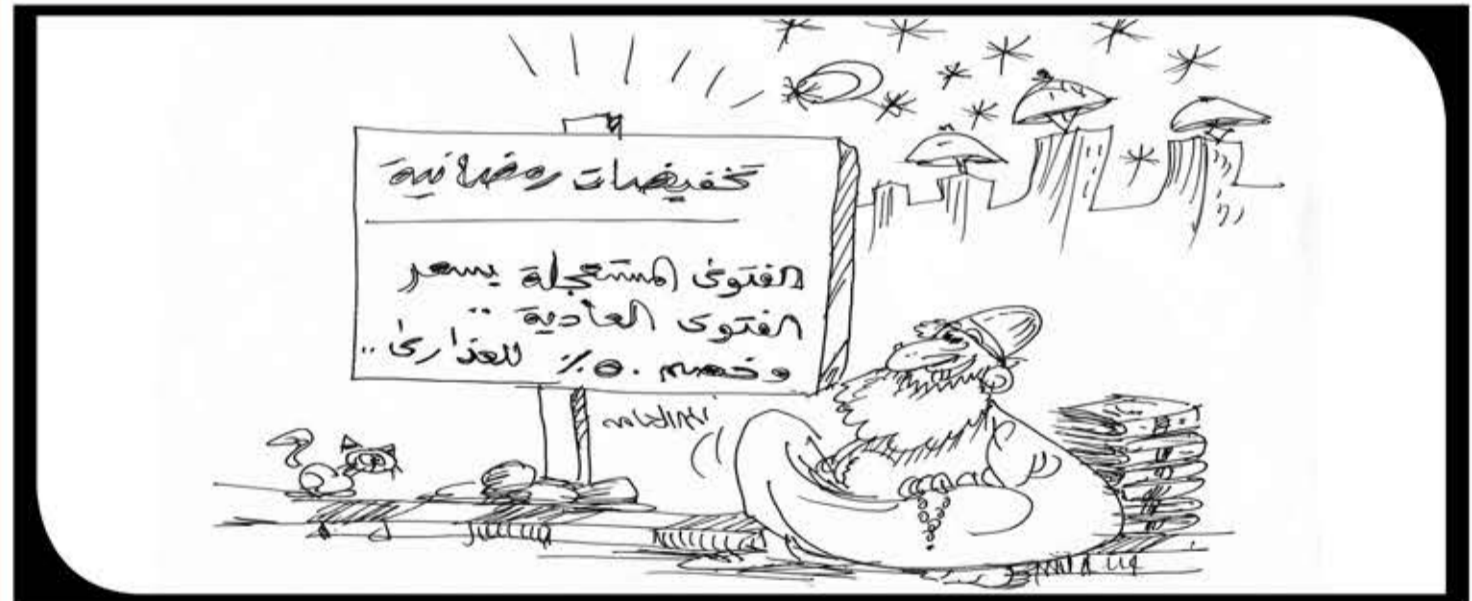 تخفيضات رمضانية
الفتوى المستعجلة بسعر
الفتوى العادية ..
وخصم ٥٠٪ للعذارى ..